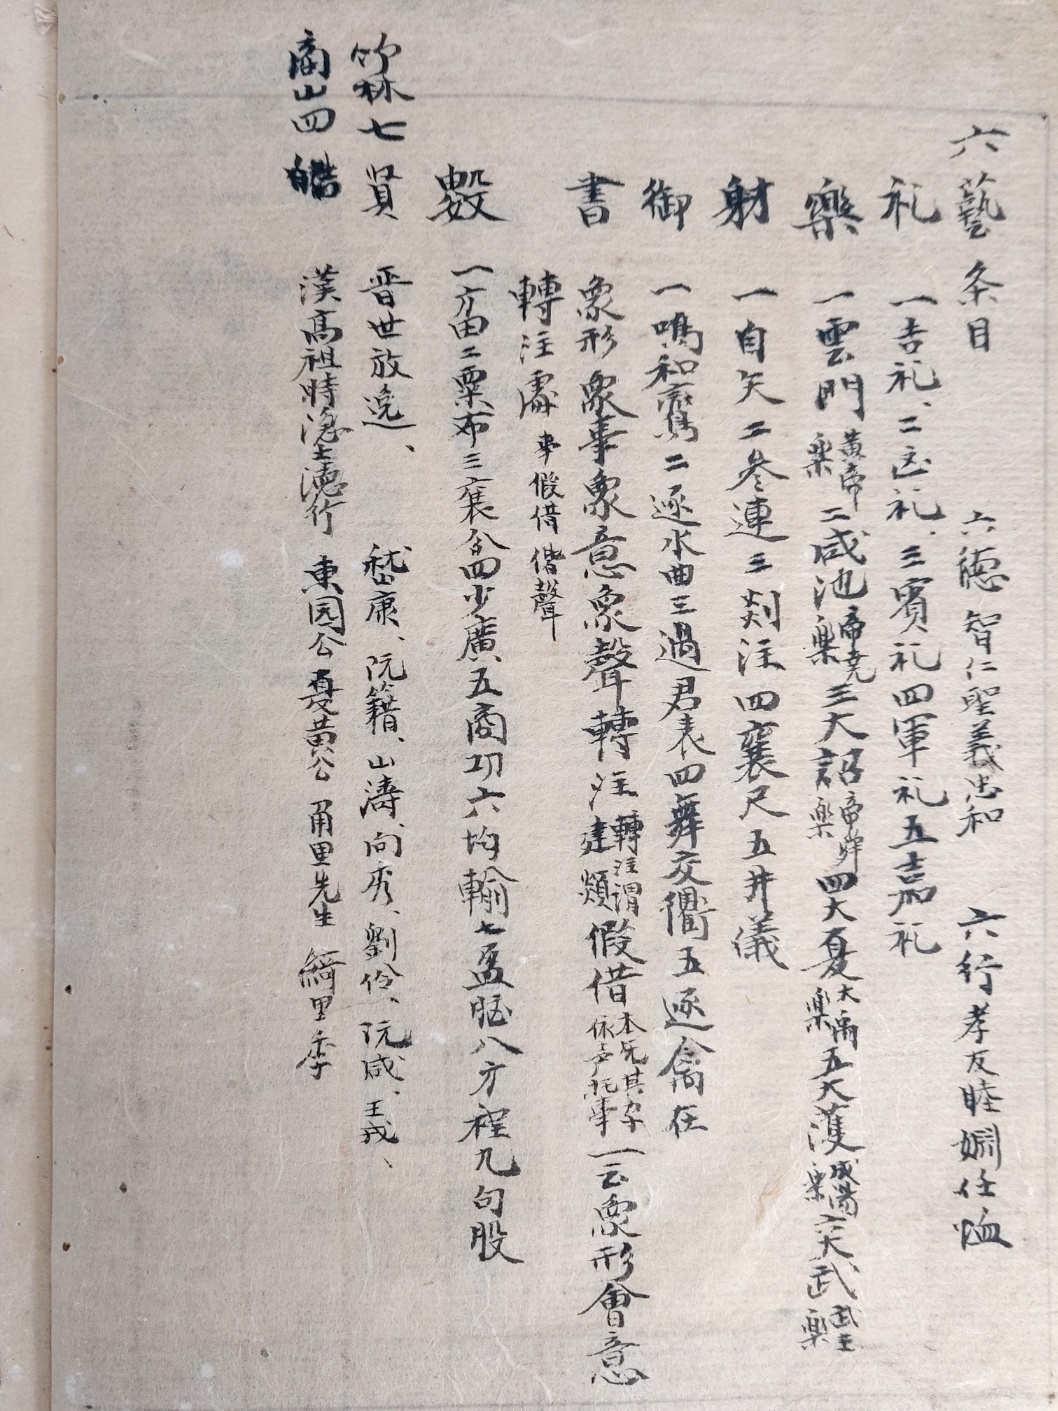 六藝条目 六德 智仁聖義忠和 六行 孝友睦婣任恤
礼 一吉礼、二凶礼、三賓礼四軍礼五嘉礼
樂 一雲門黄帝樂二咸池帝尭樂三大韶帝舜樂四大夏大禹樂五大濩成湯樂六大武武王樂
射 一白矢二参連三剡注四襄尺五井儀
御 一鳴和鸞二逐水曲三過君表四舞交衢五逐禽左
書 象形象事象意象聲轉注轉注謂建類假借本无其字依声託事一云象形會意
轉注處事假借偕聲
數 一方田二粟布三衰分四少廣五商功六均輸七盈朒八方程九句股
竹林七賢 晋世放逸、 嵆康、阮籍、山濤、向秀、劉伶、阮咸、王戎、
商山四皓 漢高祖時隠士德行 東园公夏黄公甪里先生綺里季